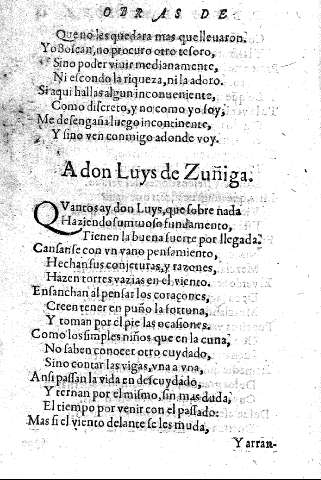 OBRAS DE
Que no les quedara mas que lleuaron.
Yo Boscan, no procuro otro tesoro,
Sino poder viuir medianamente,
Ni escondo la riqueza, ni la adoro.
Si aqui hallas algun inconueniente,
Como discreto, y no como yo soy,
Me desengaña luego incontinente,
Y sino ven conmigo adonde voy.
A don Luys de Zuñiga.
QVantos ay don Luys, que sobre nada
Haziendo sumtuoso fundamento,
Tienen la buena suerte por llegada.
Cansanse con vn vano pensamiento,
Hechan sus conjeturas, y razones,
Hazen torres vazias en el viento.
Ensanchan al pensar los coraçones,
Creen tener en puño la fortuna,
Y toman por el pie las ocasiones.
Como los simples niños que en la cuna,
No saben conocer otro cuydado,
Sino contar las vigas, vna a vna,
Ansi passan la vida en descuydado,
Y ternan por el mismo, sin mas duda,
El tiempo por venir con el passado:
Mas si el viento delante se les muda,
Y arran-